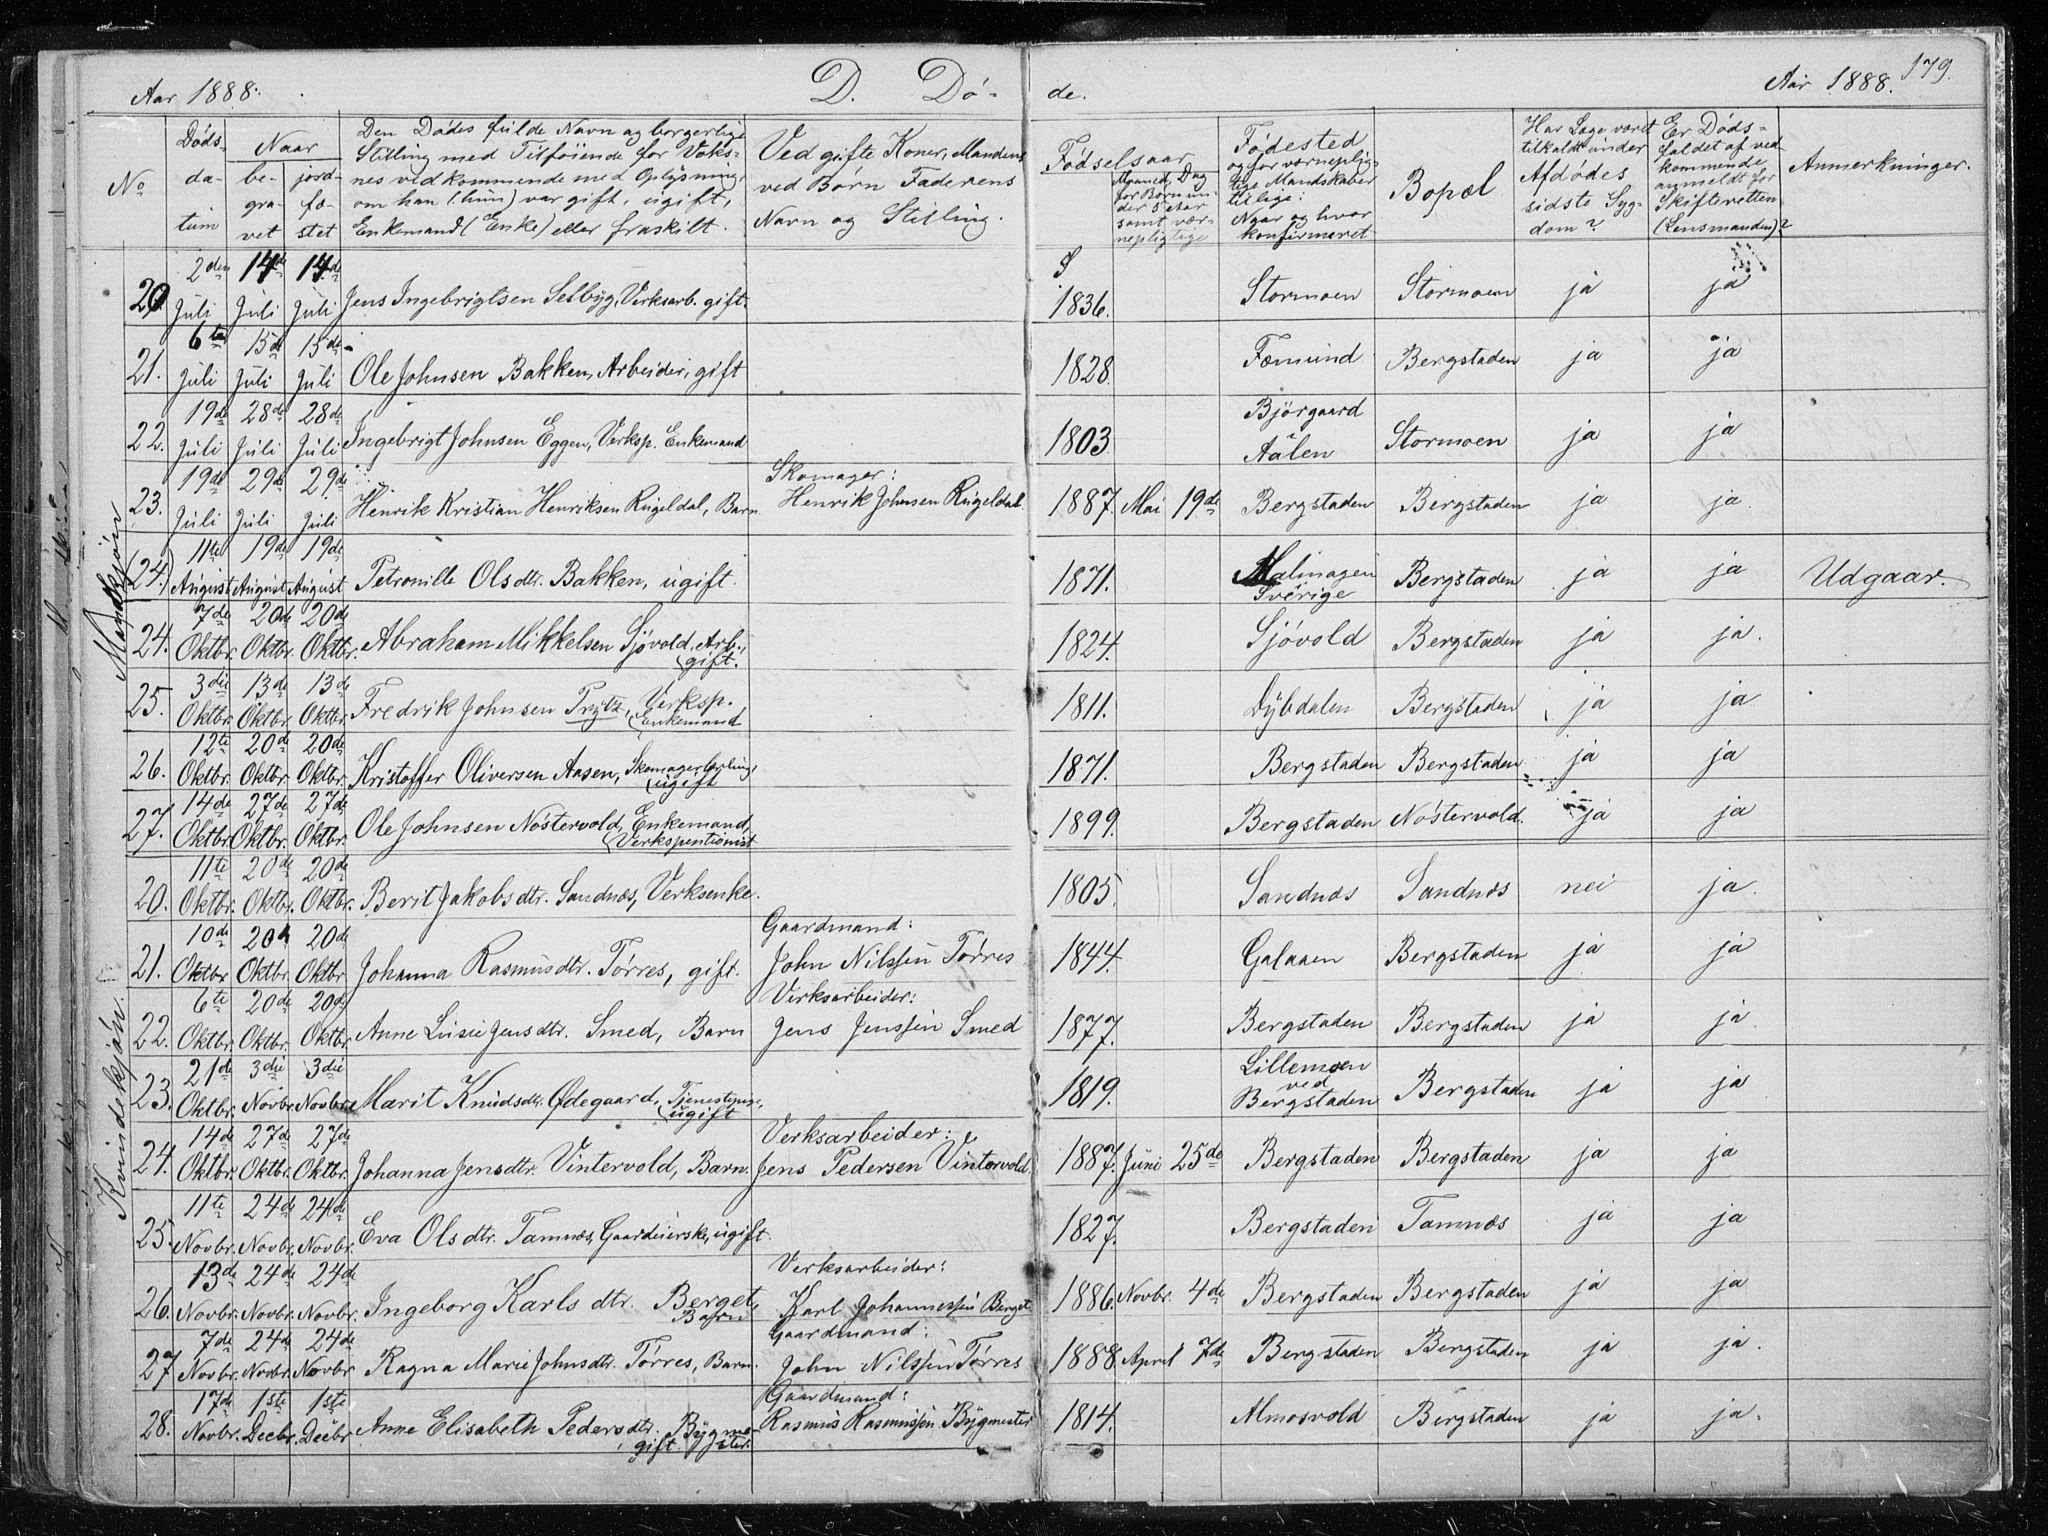 Aar 1888. D. Dö- de. Aar 1888. 179.
No. Döds-datum Naar begravet jordfæstet Den Dödes fulde Navn og borgerlige Stilling med Tilföiende for Voksnes vedkommende med Oplysning, om han (hun) var gift, ugift, Enkemand (Enke) eller fraskilt. Ved gifte Koner, Mandens, ved Børn Faderens Navn og Stilling. Födselsaar Maaned, Dag for Børn under 5 Aar samt værnepligtige Födested og for værnepligtige Mandskaber tillige: Naar og hvor konfirmeret Bopæl Har Læge været tilkaldt under Afdödes sidste Sygdom? Er Dödsfaldet af vedkommende anmeldt for Skifteretten (Lensmanden)? Anmerkninger.
Mandkjön
20. 2den Juli 14de Juli 14de Juli Jens Ingebrigtsen Selbyg, Verksarb. gift. 1836. Stormoen Stormoen ja ja
21. 6te Juli 15de Juli 15de Juli Ole Johnsen Bakken, Arbeider, gift 1828. Fæmund Bergstaden ja ja
22. 19de Juli 28de Juli 28de Juli Ingebrigt Johnsen Eggen, Verksp. Enkemand 1803. Björgaard i Aalen Stormoen ja ja
23. 19de Juli 29de Juli 29de Juli Henrik Kristian Henriksen Rugeldal, Barn Skomager: Henrik Johnsen Rugeldal 1887. Mai 19de Bergstaden Bergstaden ja ja.
(24.) 11te August 19de August 19de August Petronille Olsdtr. Bakken, ugift. 1871. Malmagen i Sverige Bergstaden ja ja Udgaar.
24. 7de Oktbr. 20de Oktbr. 20de Oktbr. Abraham Mikkelsen Sjövold, Arb., gift. 1824. Sjövold Bergstaden ja ja.
25. 3die Oktbr. 13de Oktbr. 13de Oktbr. Fredrik Johnsen Prytz, Verksp. Enkemand 1811. Dybdalen Bergstaden ja ja
26. 12te Oktbr. 20de Oktbr. 20de Oktbr. Kristoffer Oliversen Aasen, Skomagerlærling, ugift 1871. Bergstaden Bergstaden ja ja
27. 14de Oktbr. 27de Oktbr. 27de Oktbr. Ole Johnsen Nöstervold, Enkemand, Verkspentionist 1899. Bergstaden Nöstervold. ja ja
Kvindekjön.
20. 11te Oktbr. 20de Oktbr. 20de Oktbr. Berit Jakobsdtr. Sandnæs, Verksenke. 1805. Sandnæs Sandnæs nei ja.
21. 10de Oktbr 20de Oktbr. 20de Oktbr Johanna Rasmusdtr. Törres, gift. Gaardmand: John Nilssen Törres 1844. Galaaen Bergstaden ja ja
22. 6te Oktbr. 20de Oktbr. 20de Oktbr Anne Lusie Jensdtr. Smed, Barn Verksarbeider: Jens Jenssen Smed 1877. Bergstaden Bergstaden ja ja.
23. 21de Oktbr. 3die Novbr. 3die Novbr. Marit Knudsdtr. Ødegaard, Tjenestepige, ugift 1819. Lillemoen ved Bergstaden Bergstaden ja ja
24. 14de Oktbr. 27de Oktbr. 27de Oktbr. Johanna Jensdtr. Vintervold, Barn. Verksarbeider: Jens Pedersen Vintervold 1887. Juni 25de Bergstaden Bergstaden ja ja
25. 11te Novbr. 24de Novbr. 24de Novbr. Eva Olsdtr. Tamnæs, Gaardeierske, ugift. 1827. Bergstaden Tamnæs ja ja
26. 13de Novbr. 24de Novbr. 24de Novbr. Ingeborg Karlsdtr. Berget, Barn Verksarbeider: Karl Johannessen Berget 1886. Novbr. 4de Bergstaden Bergstaden ja ja
27 7de Novbr. 24de Novbr. 24de Novbr Ragna Marie Johnsdtr. Törres, Barn. Gaardmand: John Nilssen Törres 1888. April 7de Bergstaden Bergstaden ja ja.
28. 17de Novbr. 1ste Decbr. 1ste Decbr. Anne Elisabeth Pedersdtr. Bygmester. gift Gaardmand: Rasmus Rasmussen Bygmester 1814. Almosvold Bergstaden ja ja.